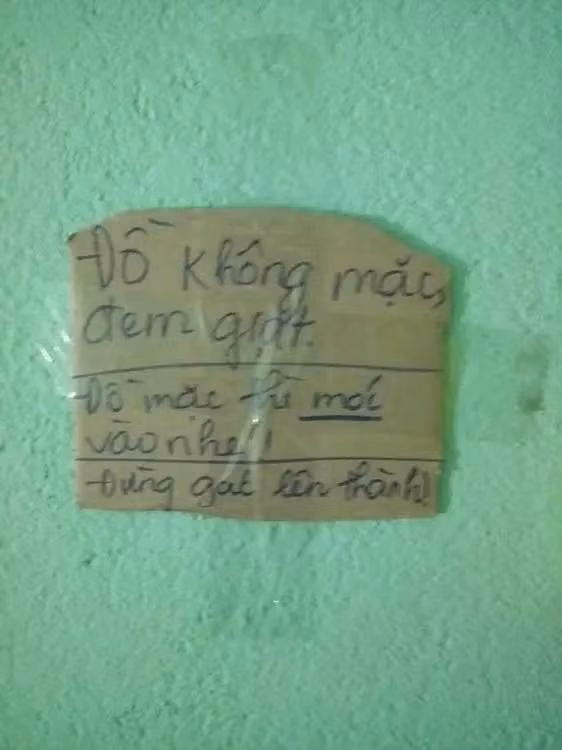 Đồ không mặc,
đem giặt.
Đồ mặc thì móc
vào nhe!!
Đừng gác lên thành!!